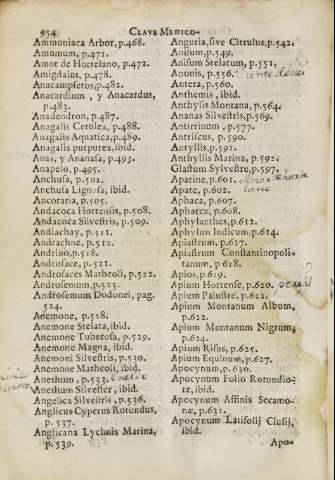 954 CLAVE MEDICO-
Ammoniaca Arbor, p.468.
Amomum, p.471.
Amor de Hortelano, p.472.
Amigdalus, p.478.
Anacampseros, p.482.
Anacardium, y Anacardus,
p.483.
Anadendron, p.487.
Anagalis Cerulea, p.488.
Anagalis Aquatica, p.489.
Anagalis purpurea, ibid.
Anas, y Ananasa, p.493.
Anapelo, p.495.
Anchusa, p.501.
Anchusa Lignosa, ibid.
Ancoraria, p.505.
Andacoca Hortensis, p.508.
Andacoca Silvestris, p.509.
Andiachay, p.511.
Andrachne, p.512.
Andrino, p.518.
Androface, p.521.
Androsaces Matheoli, p.522.
Androsemum, p.523.
Androsemum Dodonei, pag.
524.
Anemone, p.518.
Anemone Stelata, ibid.
Anemone Tuberosa, p.529.
Anemone Magna, ibid.
Anemoni Silvestris, p.530.
Anemone Matheoli, ibid.
Anethum, p.533.
Anethum Silvester, ibid.
Angelica Silvestris, p.536.
Anglicus Cyperus Rotundus,
p.537.
Anglicana Lychnis Marina,
p.539.
Anguria, sive Citrulus, p.542.
Anisum, p.549.
Anisum Stelatum, p.551.
Anonis, p.556.
Antera, p.560.
Anthemis, ibid.
Anthylis Montana, p.564.
Ananas Silvestris, p.569.
Antirrinum, p.577.
Antriscus, p.590.
Antyllis, p.591.
Anthyllis Marina, p.592.
Glastum Sylvestre, p.597.
Aparine, p.601.
Apate, p.602.
Aphaca, p.607.
Apharca, p.608.
Aphylanthes, p.612.
Aphylon Indicum, p.614.
Apiastrum, p.617.
Apiastrum Constantinopoli-
tanum, p.618.
Apios, p.619.
Apium Hortense, p.620.
Apium Palustre, p.621.
Apium Montanum Album,
p.622.
Apium Montanum Nigrum,
p.624.
Apium Risus, p.625.
Apium Equinum, p.627.
Apocynum, p.630.
Apocynum Folio Rotundio-
re, ibid.
Apocynum Affinis Secamo-
næ, p.631.
Apocynum Latifolij Clusij,
ibid.
Apo-